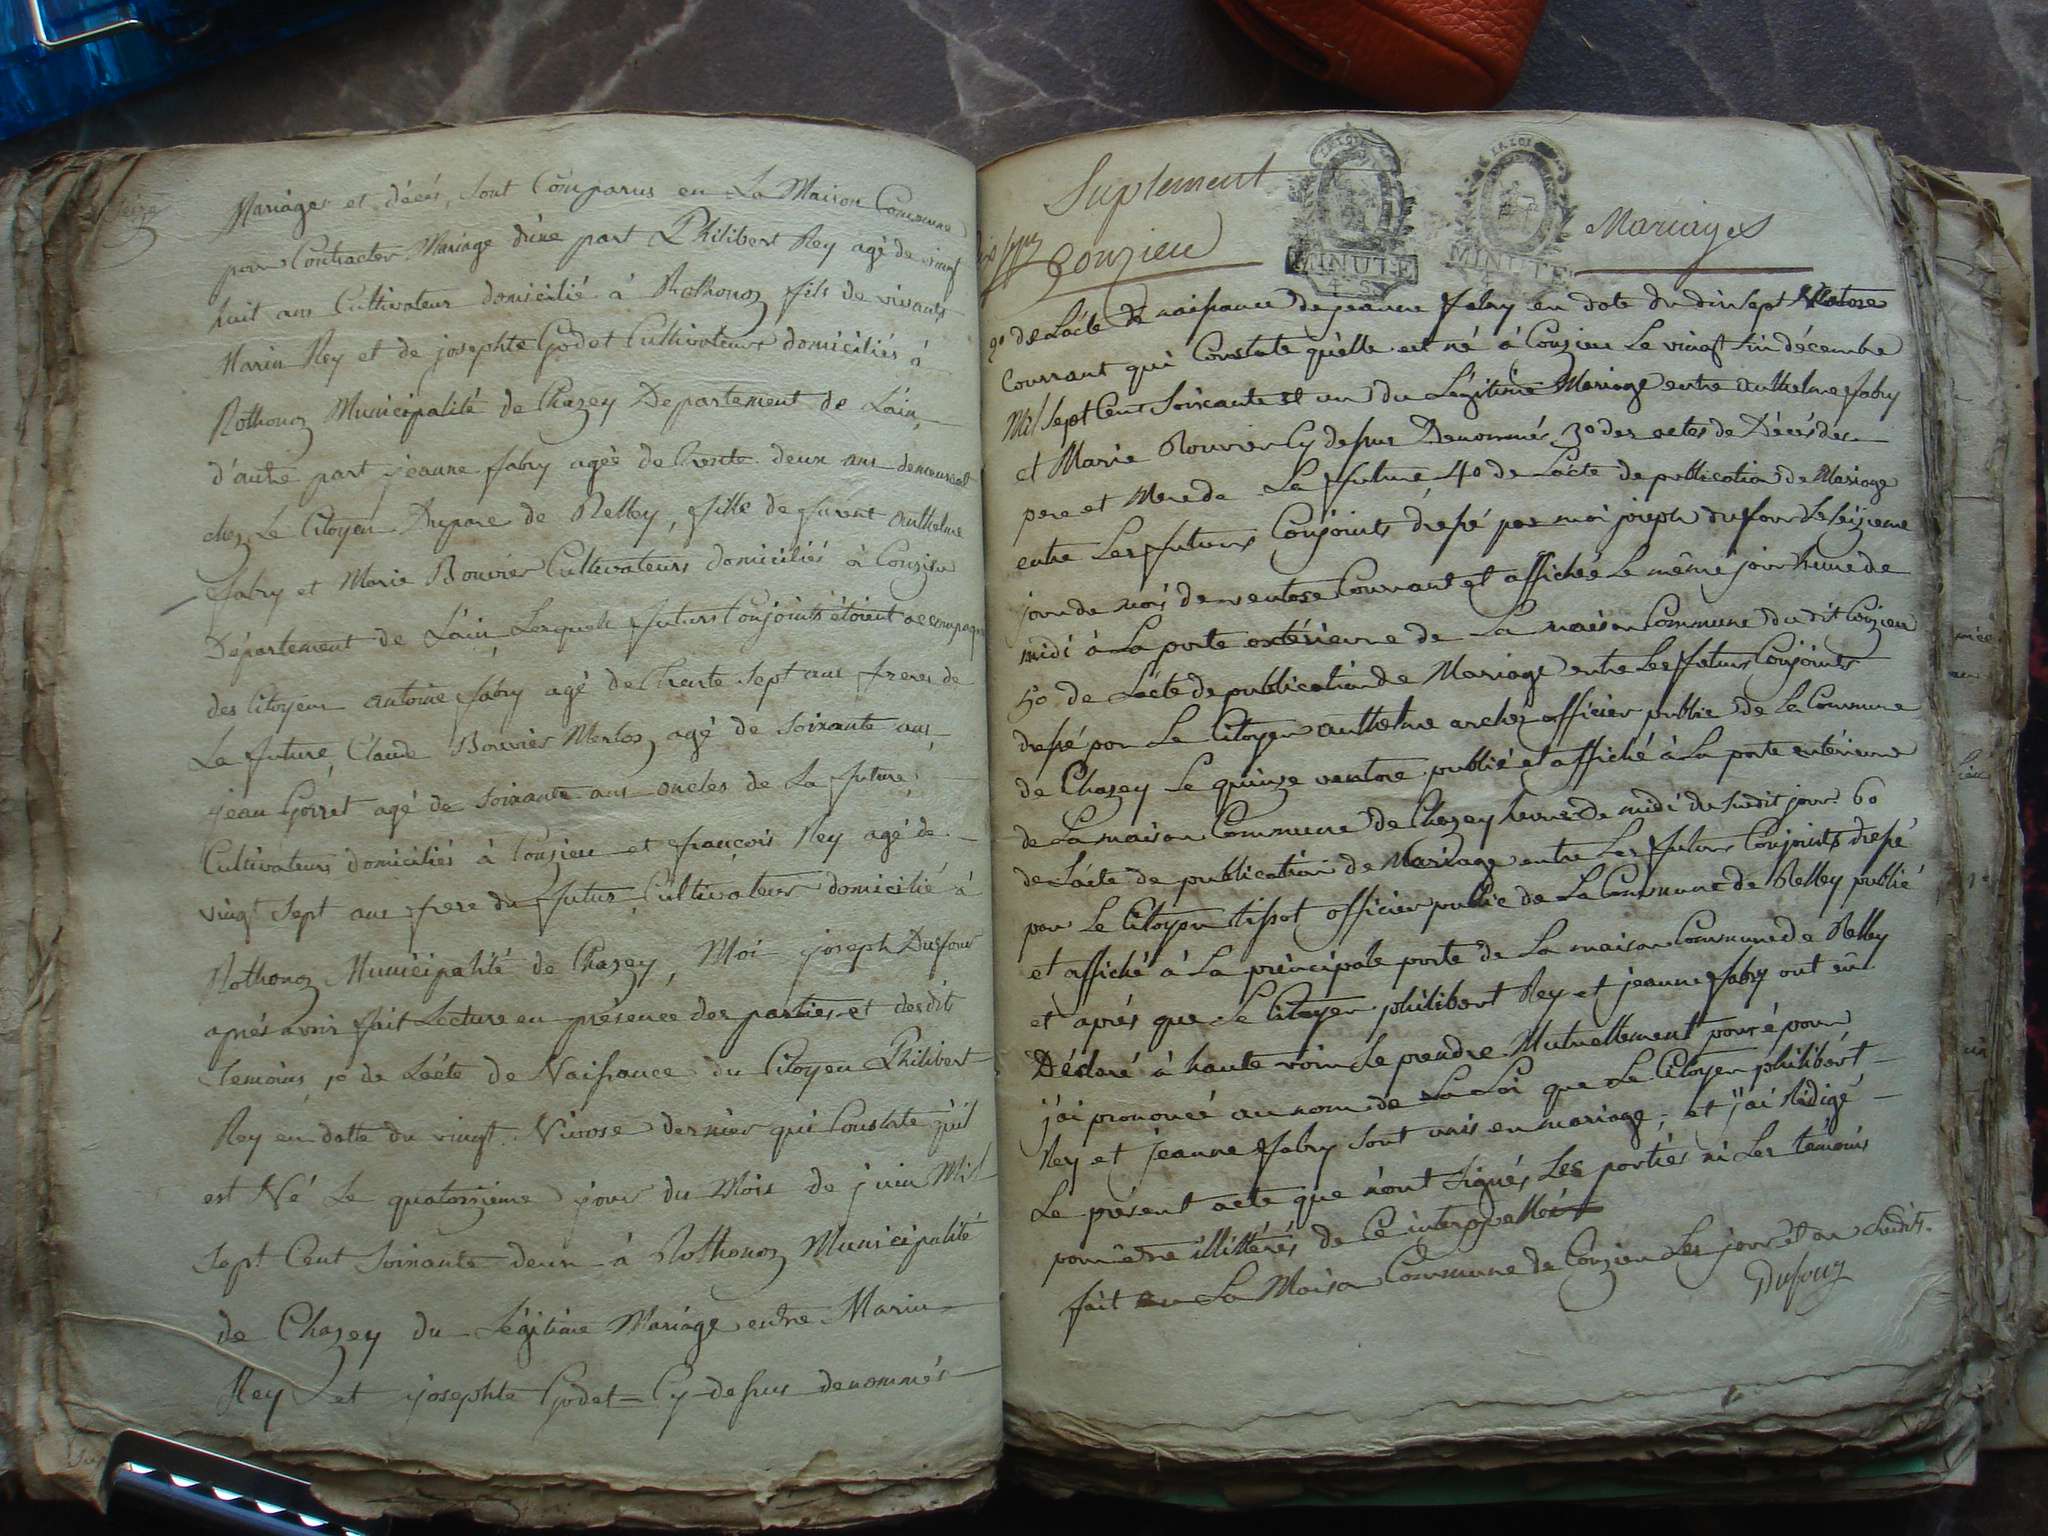 seize
Mariages et décés, sont Comparus en La Maison Commune
pour Contracter Mariage d'une part Philibert Rey agé de vingt
huit ans Cultivateur domicilié à Rothonoz fils de vivants
Marin Rey et de josephte Godet Cultivateurs domiciliés à
Rothonoz Municipalité de Chazey Departement de L'ain,
d'autre part jeanne fabry agée de trente deux ans demeurant
chez Le Citoyen Duparc de Belley, fille de furent anthelme
fabry et Marie Bouvier Cultivateurs domiciliés à Conzieu
Département de L'ain, Lesquels futurs Conjoints étoient accompagné
des Citoyens antoine fabry agé de trente sept ans freres de
La future, Claude Bouvier Merloz agé de soixante ans
jean Goirret agé de soixante ans oncles de La future,
Cultivateurs domiciliés à Conzieu et françois Rey agé de
vingt sept ans frere du futur Cultivateur domicilié à
Rothonoz Municipalité de Chazey, Moi joseph Dufour
aprés avoir fait Lecture en présence des parties et desdits
temoins, 1o de L'acte de Naissance du Citoyen Philibert
Rey en datte du vingt Nivose dernier qui Constate qu'il
est Né Le quatorzieme jour du Mois de juin Mil
sept Cent soixante deux à Rothonoz Municipalité
de Chazey du Légitime Mariage entre Marin
Rey et josephte Godet Cy-dessus denommés
Suplement
Conzieu
LA LOI
MINUTE
LA LOI
MINUTE
Mariages
2o de L'acte de naissance de jeanne fabry en date du dix sept Ventose
Courrant qui Constate qu'elle est né à Conzieu Le vingt six décembre
Mil Sept Cent Soixante et un du Légitime Mariage entre anthelme fabry
et Marie Bouvier Cy dessus Denommés, 3o des actes de Décés des
pere et Mere de La future, 4o de L'acte de publication de Mariage
entre Les futurs Conjoints dressé par moi joseph dufour Le seizieme
jour de mois de ventose Courrant et affichée Le même jour heure de
midi à La porte extérieure de La maison Commune du dit Conzieu
5o de L'acte de publication de Mariage entre Les futurs Conjoints
dressé par Le Citoyen anthelme archez officier public de La Commune
de Chazey Le quinze ventose publié et affiché à La porte extérieure
de La maison Commune de Chazey heure de midi du susdit jour 6o
de L'acte de publication de Mariage entre Les futurs Conjoints dressé
par Le Citoyen tissot officier public de La Commune de Belley publié
et affiché à La principale porte de La maison Commune de Belley
et aprés que Le Citoyen philibert Rey et jeanne fabry ont eû
Déclaré à haute voix se prendre Mutuellement pour époux
j'ai prononcé au nom de La Loi que Le Citoyen philibert
Rey et jeanne fabry sont unis en mariage, et j'ai Rédigé
Le présent acte que n'ont signés Les parties ni Les témoins
pour être illittérés de Ce interpellé
fait en La Maison Commune de Conzieu Les jour et an susdits.
Dufour